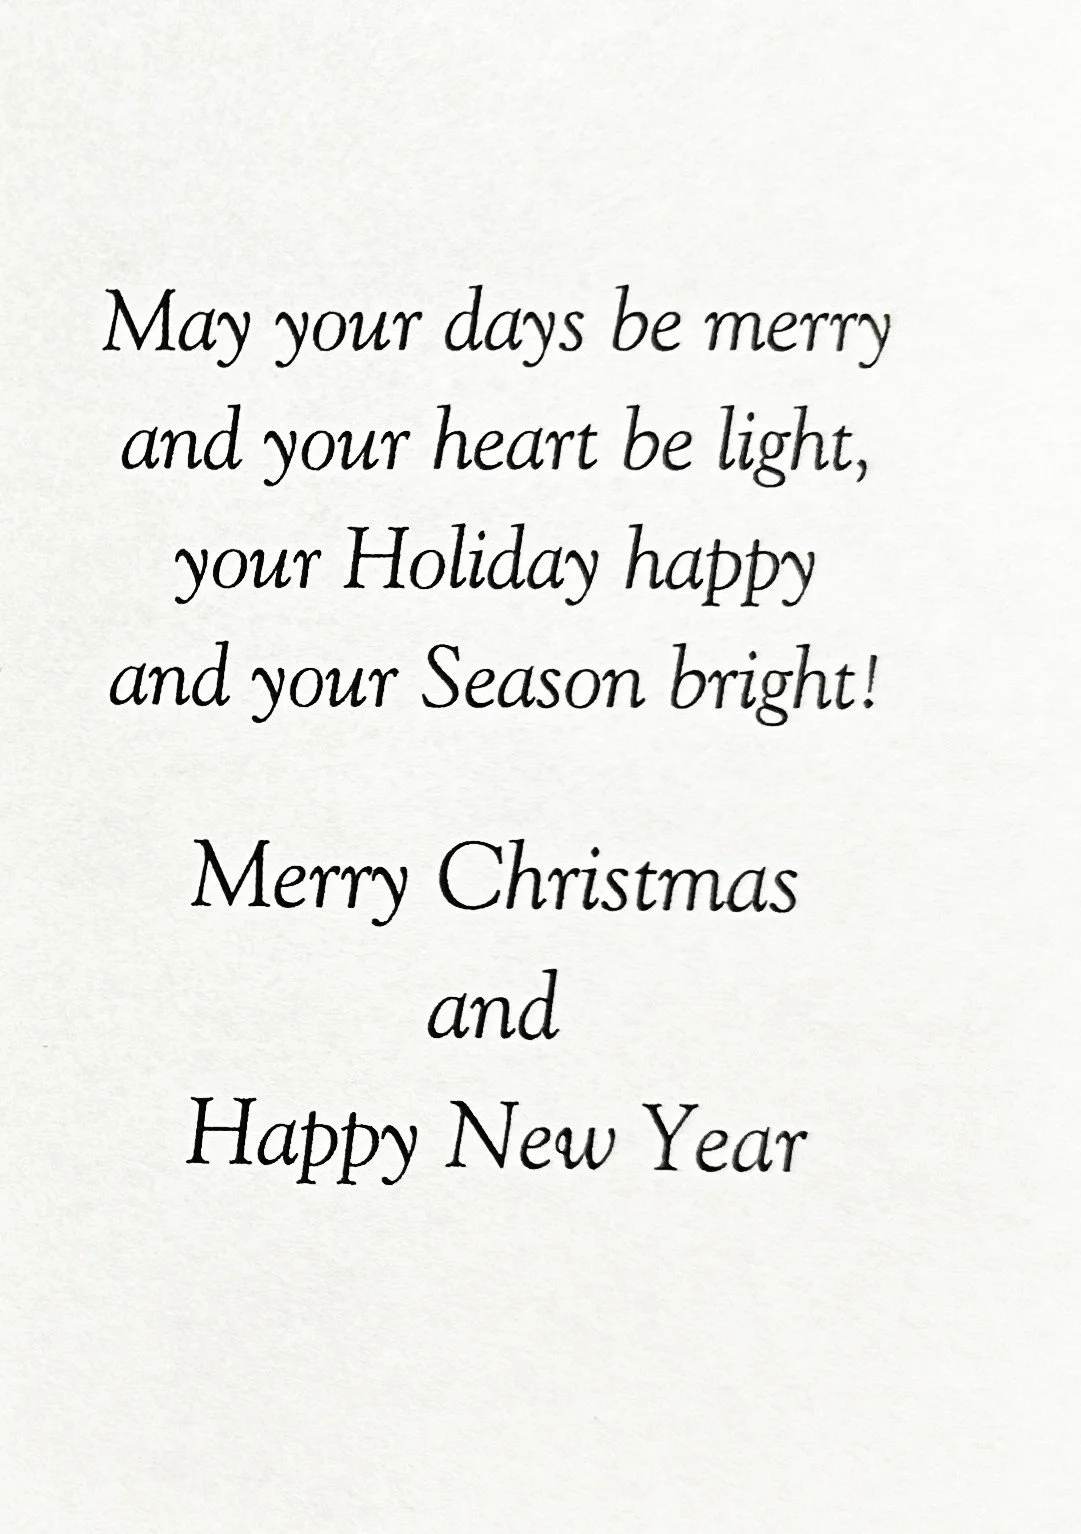 May your days be merry
and your heart be light,
your Holiday happy
and your Season bright!
Merry Christmas
and
Happy New Year